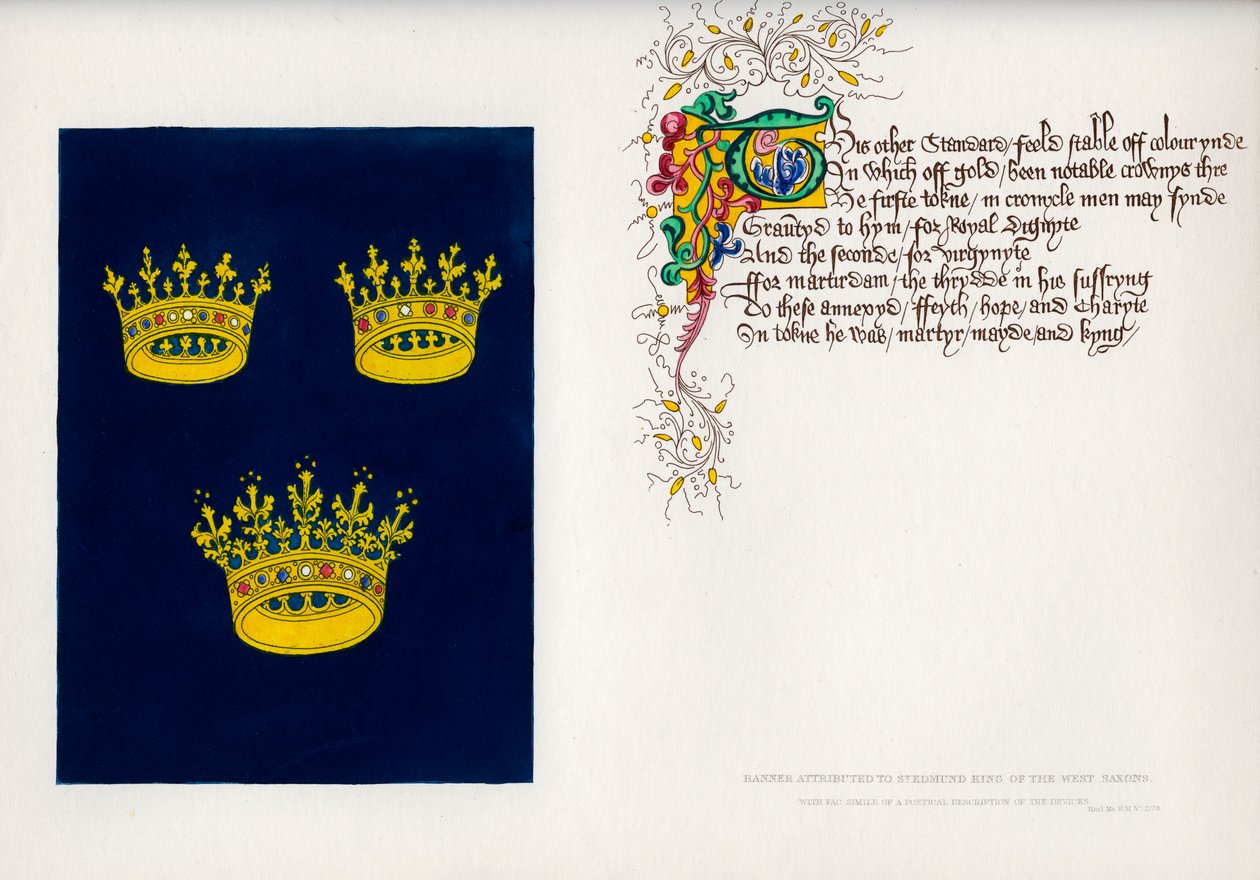 This other Standard / feeld stable off colour ynde
In which off gold / been notable crownys thre
The firste tokne / in cronycle men may fynde
Grauntyd to hym / for Royal dignyte
And the seconde / for virgynyte
Ffor martirdam / the thrydde in his suffryng
To these annexyd / ffeyth / hope / and Charyte
In tokne he was / martyr / mayde / and kyng /
BANNER ATTRIBUTED TO ST EDMUND KING OF THE WEST SAXONS.
WITH FAC SIMILE OF A POETICAL DESCRIPTION OF THE DEVICES
Harl. Ms. B.M. No. 2278.